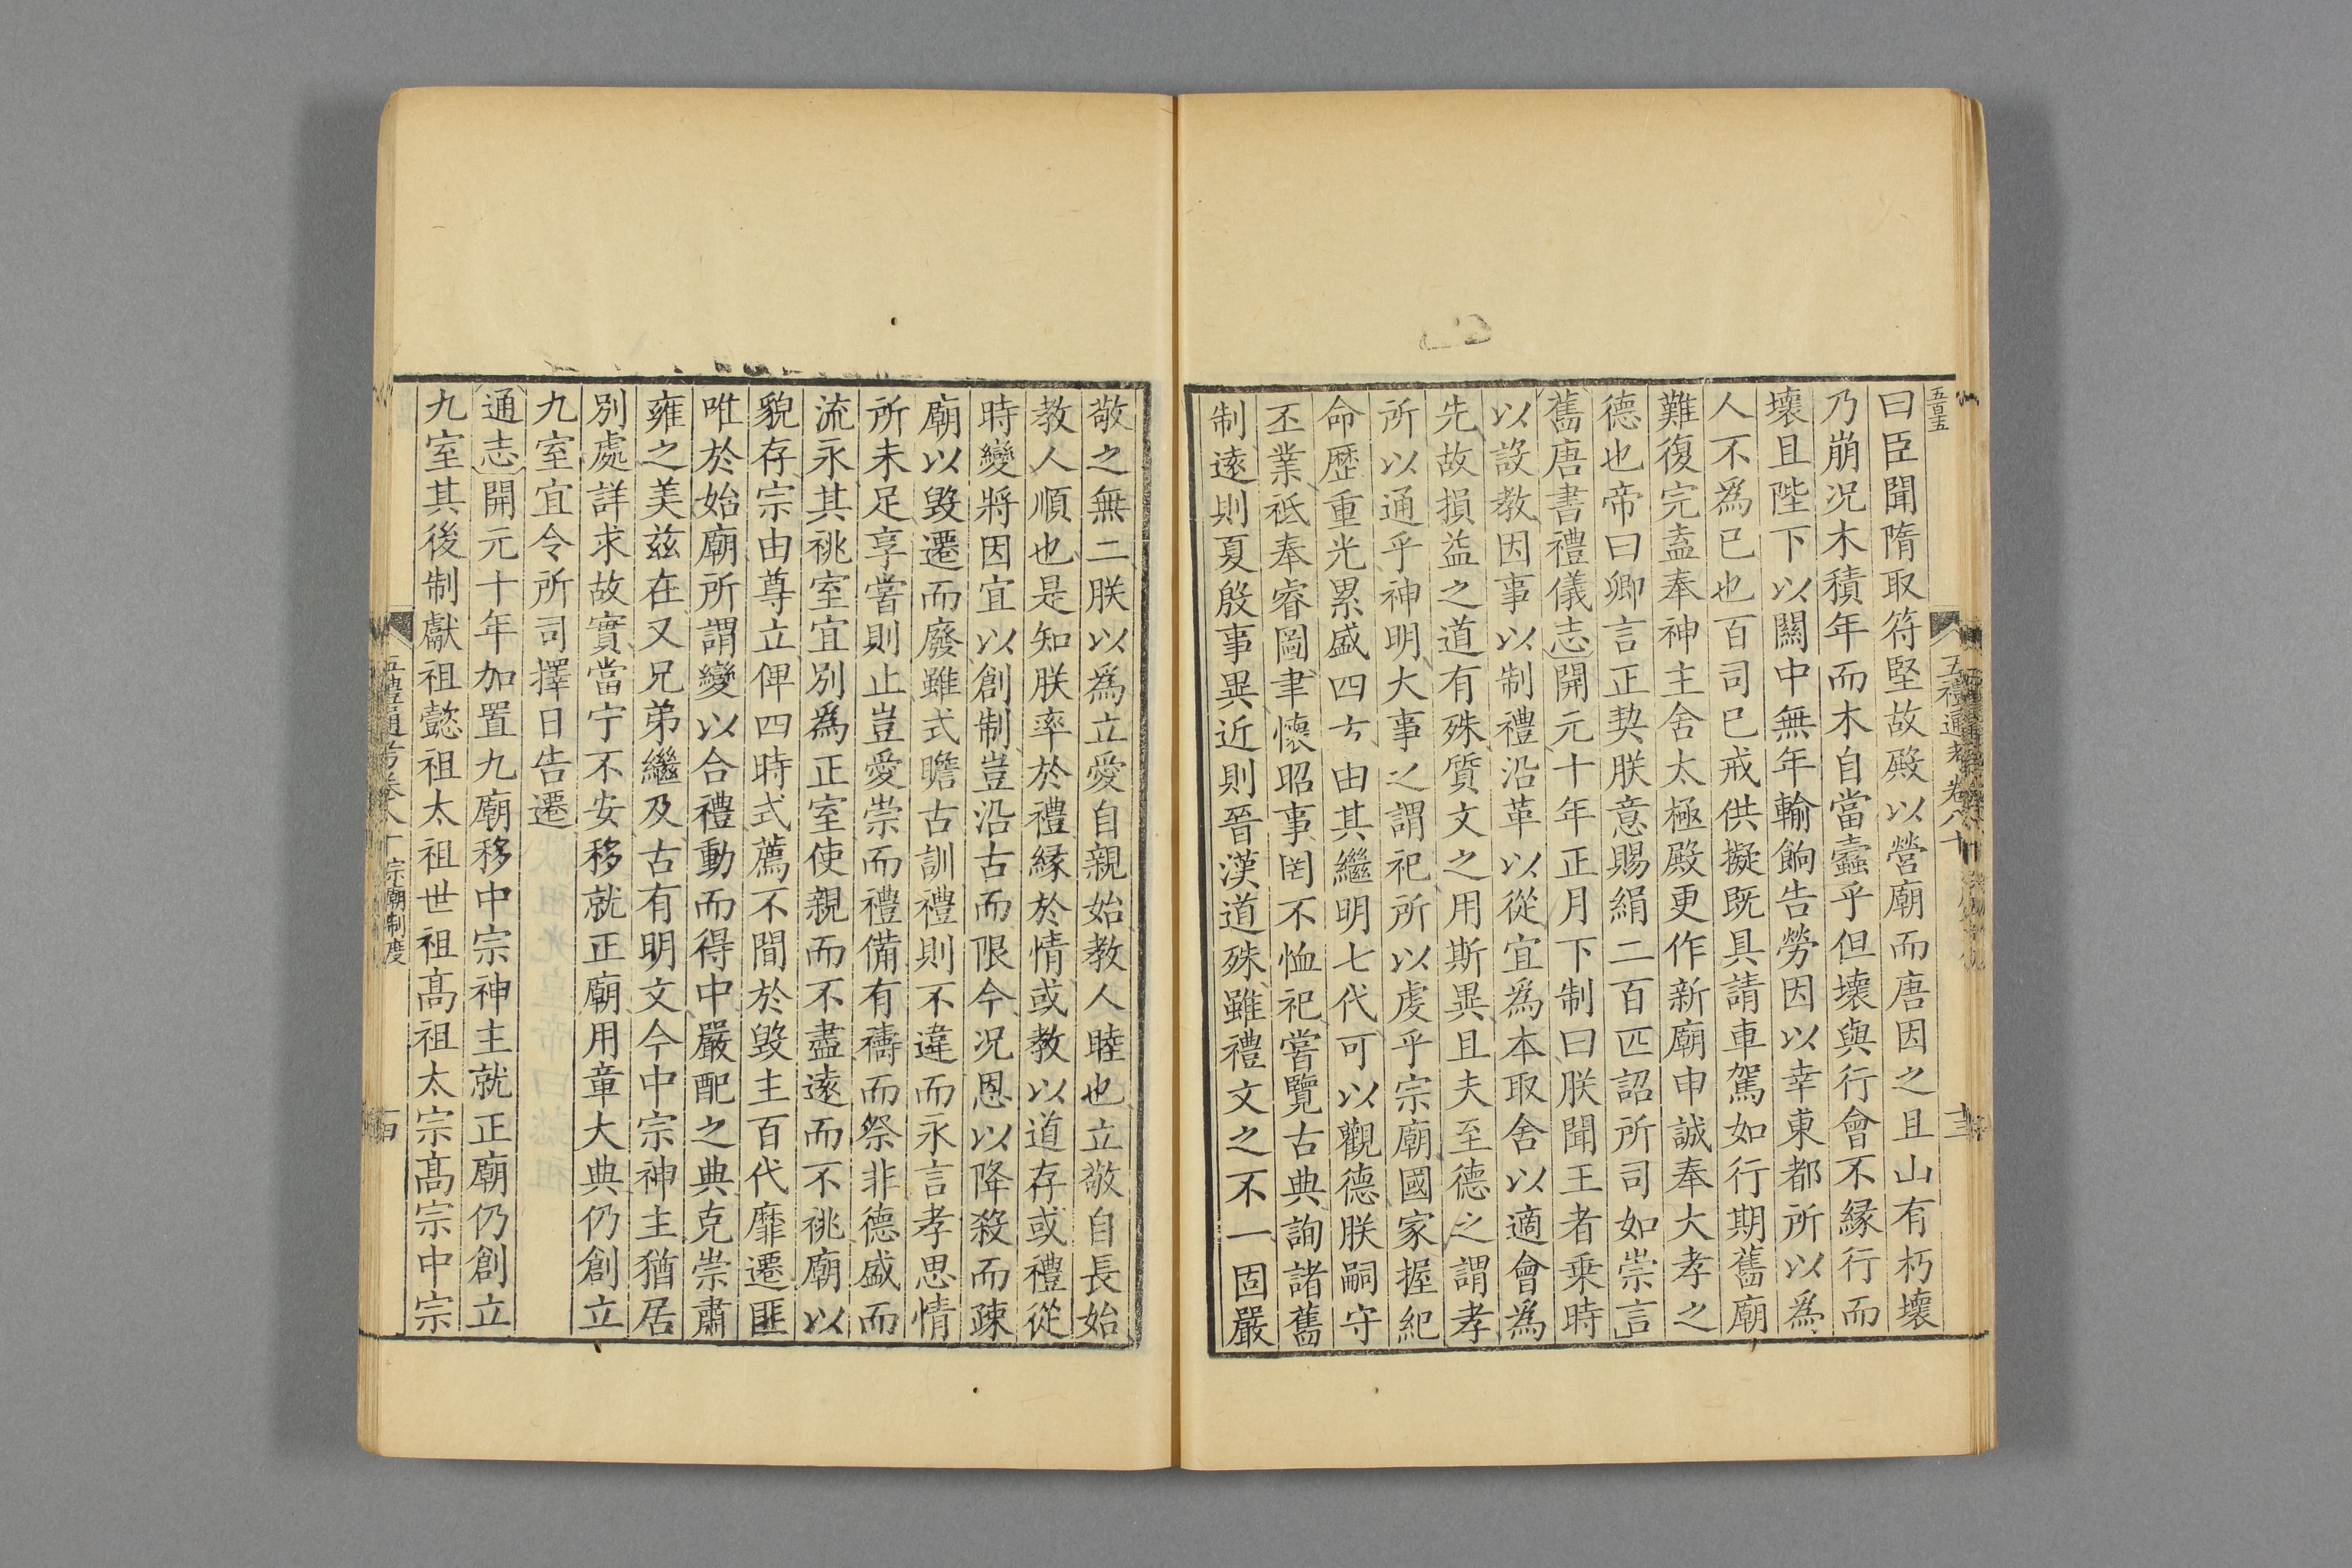 五百五
曰臣聞隋取符堅故殿以營廟而唐因之且山有朽壞
乃崩况木積年而木自當蠹乎但壞與行會不緣行而
壞且陛下以關中無年輸餉告勞因以幸東都所以爲
人不爲已也百司已戒供擬既具請車駕如行期舊廟
難復完盍奉神主舍太極殿更作新廟申誠奉大孝之
德也帝曰卿言正契朕意賜絹二百匹詔所司如崇言
舊唐書禮儀志開元十年正月下制曰朕聞王者乗時
以設教因事以制禮沿革以從宜爲本取舍以適會爲
先故損益之道有殊質文之用斯異且夫至德之謂孝
所以通乎神明大事之謂祀所以虔乎宗廟國家握紀
命歷重光累盛四方由其繼明七代可以觀德朕嗣守
丕業祗奉睿圖聿懷昭事罔不恤祀嘗覽古典詢諸舊
制遠則夏殷事異近則晉漢道殊雖禮文之不一固嚴
五禮通考卷八十
十三
敬之無二朕以爲立愛自親始教人睦也立敬自長始
教人順也是知朕率於禮緣於情或教以道存或禮從
時變將因宜以創制豈沿古而限今况恩以降殺而疎
廟以毀遷而廢雖式瞻古訓禮則不違而永言孝思情
所未足享嘗則止豈愛崇而禮備有禱而祭非德盛而
流永其祧室宜別爲正室使親而不盡遠而不祧廟以
貌存宗由尊立俾四時式薦不間於毀主百代靡遷匪
唯於始廟所謂變以合禮動而得中嚴配之典克崇肅
雍之美兹在又兄弟繼及古有明文今中宗神主猶居
別處詳求故實當宁不安移就正廟用章大典仍創立
九室宜令所司擇日告遷
通志開元十年加置九廟移中宗神主就正廟仍創立
九室其後制獻祖懿祖太祖世祖高祖太宗高宗中宗
宗廟制度